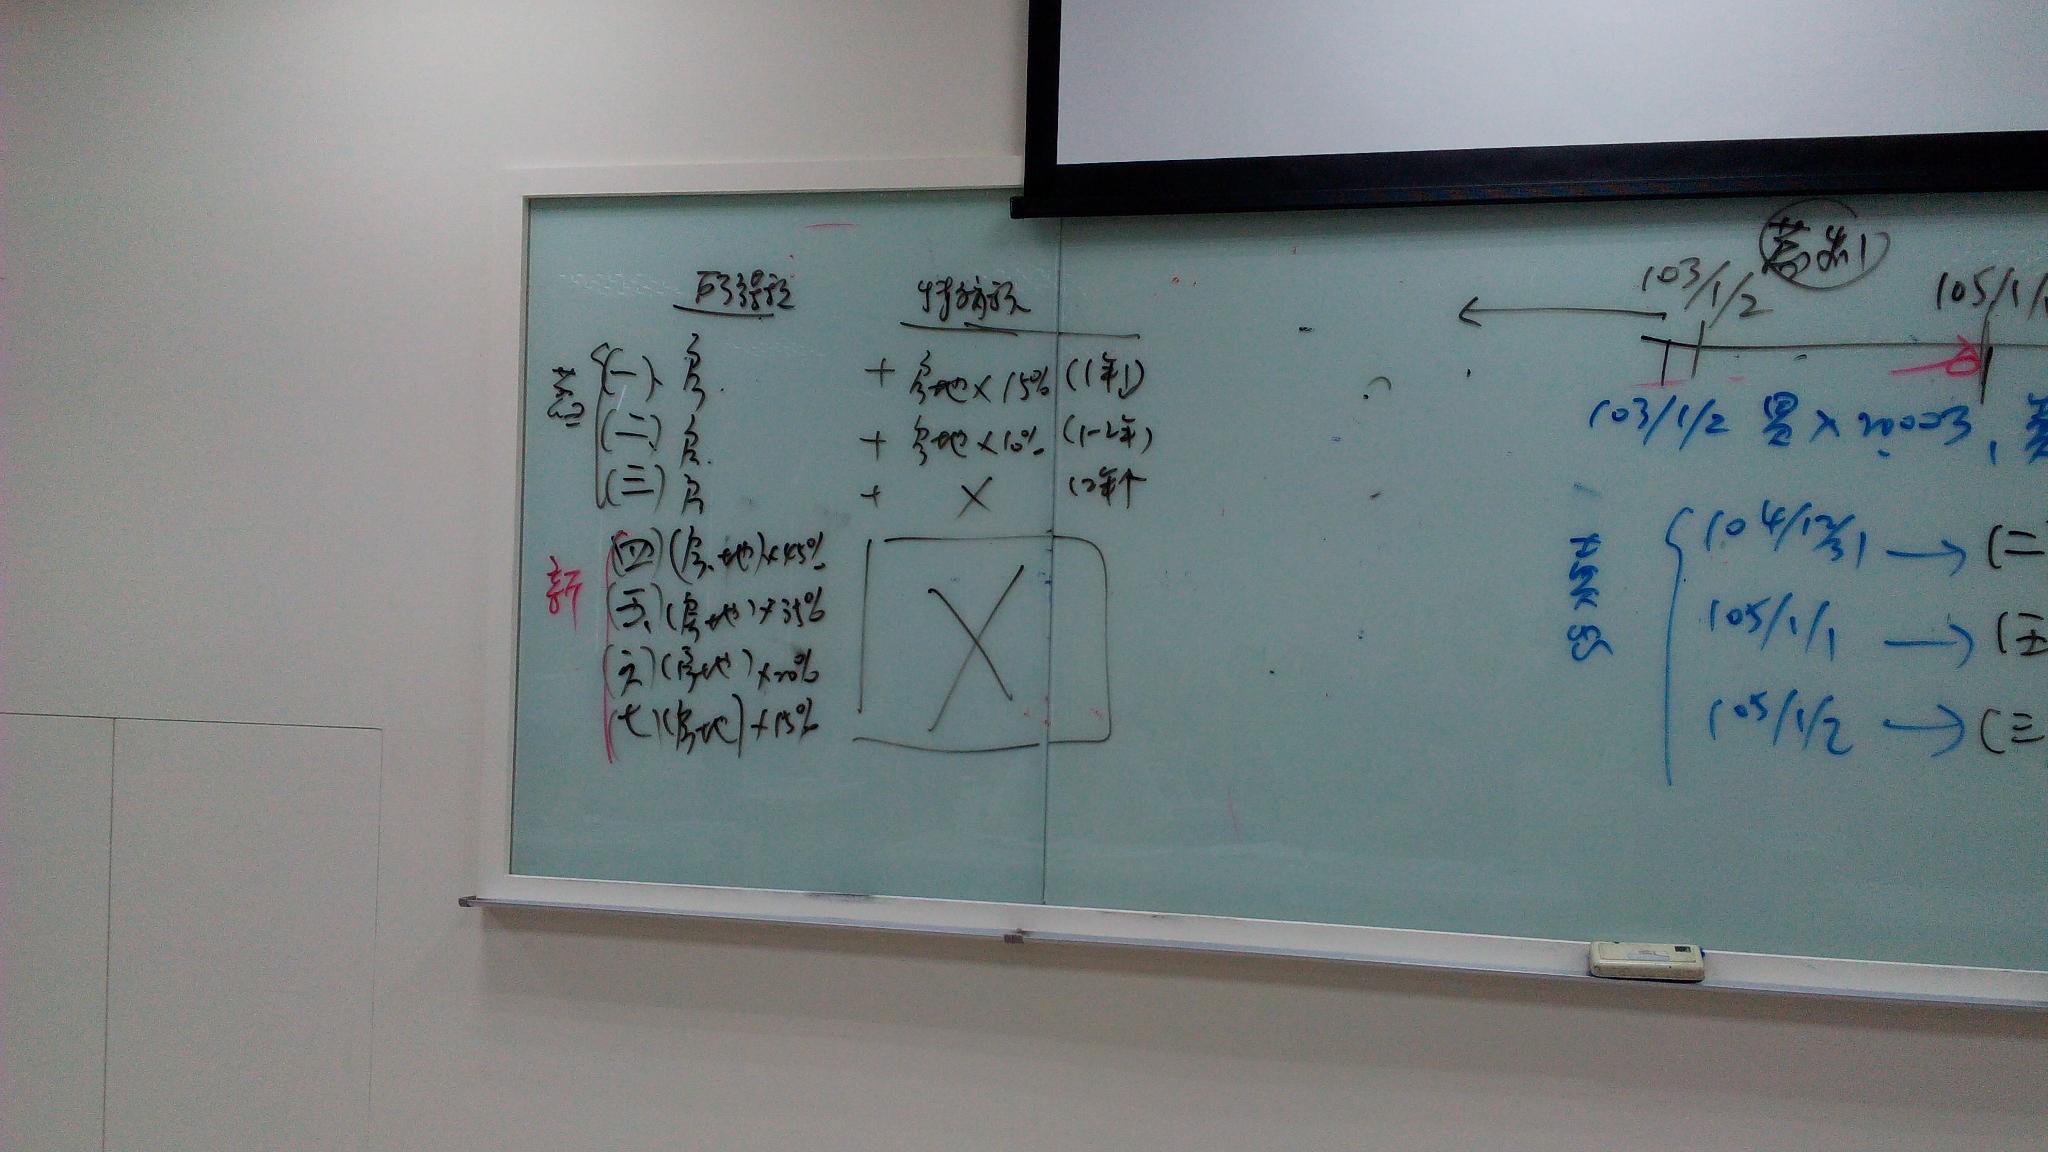 所得稅 特種稅
舊 (一) 房 + 房地×15% (1年↓)
(二) 房 + 房地×10% (1-2年)
(三) 房 + × (2年↑
新 (四) (房、地)×45%
(五) (房、地)×35%
(六) (房地)×20%
(七) (房地)×15%
舊制
103/1/2 105/1/1
103/1/2 買×2000萬,
104/12/31 → (二
105/1/1 → (五
105/1/2 → (三